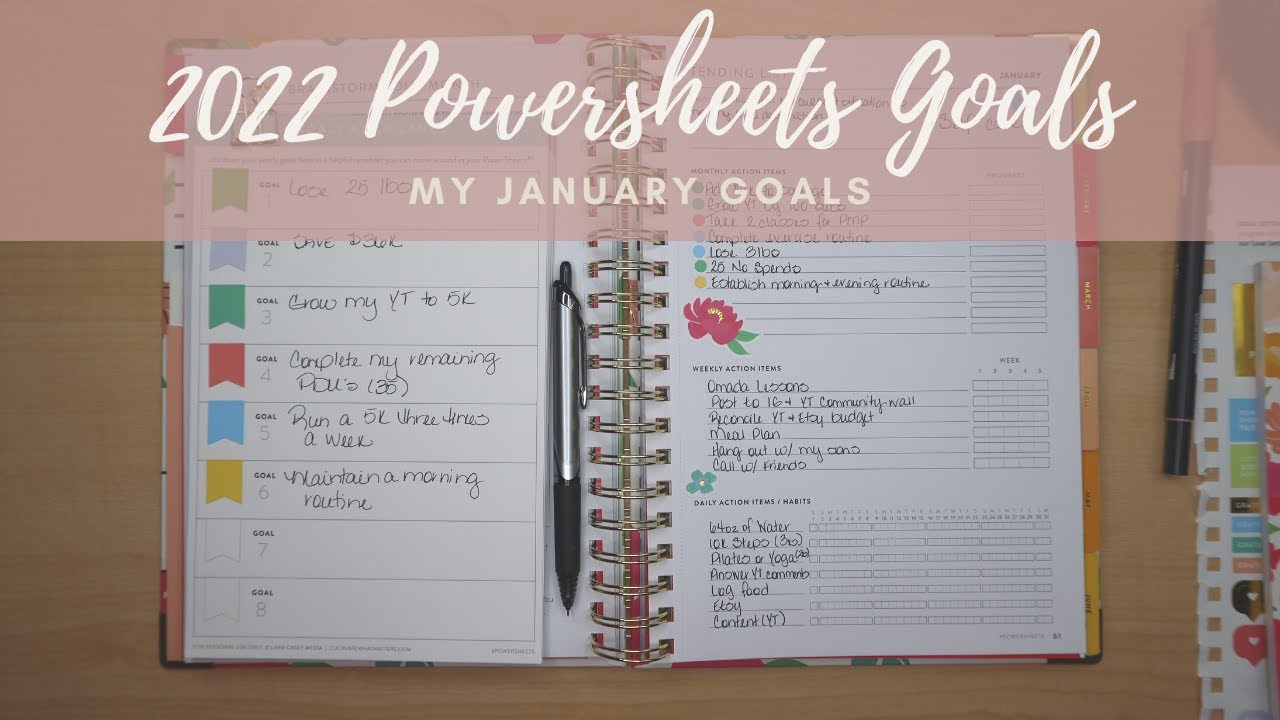 2022 Powersheets Goals
MY JANUARY GOALS
GOAL
1
Lose 25 lbs
GOAL
2
Save $36K
GOAL
3
Grow my YT to 5K
GOAL
4
Complete my remaining
PDU's (35)
GOAL
5
Run a 5K three times
a week
GOAL
6
Maintain a morning
routine
GOAL
7
GOAL
8
#POWERSHEETS
TENDING LIST
JANUARY
MONTHLY ACTION ITEMS
PROGRESS
Take 2 classes for PMP
Complete exercise routine
Lose 3lbs
25 No Spends
Establish morning + evening routine
WEEKLY ACTION ITEMS
WEEK
1 2 3 4 5
Omada Lessons
Post to IG + YT Community wall
Reconcile YT + Etsy budget
Meal Plan
Hang out w/ my sons
Call w/ friends
DAILY ACTION ITEMS / HABITS
64oz of Water
10K Steps (3x5)
Pilates or Yoga
Answer YT comments
Log food
Etsy
Content (YT)
#POWERSHEETS 61
FEBRUARY
MARCH
APRIL
MAY
JUNE